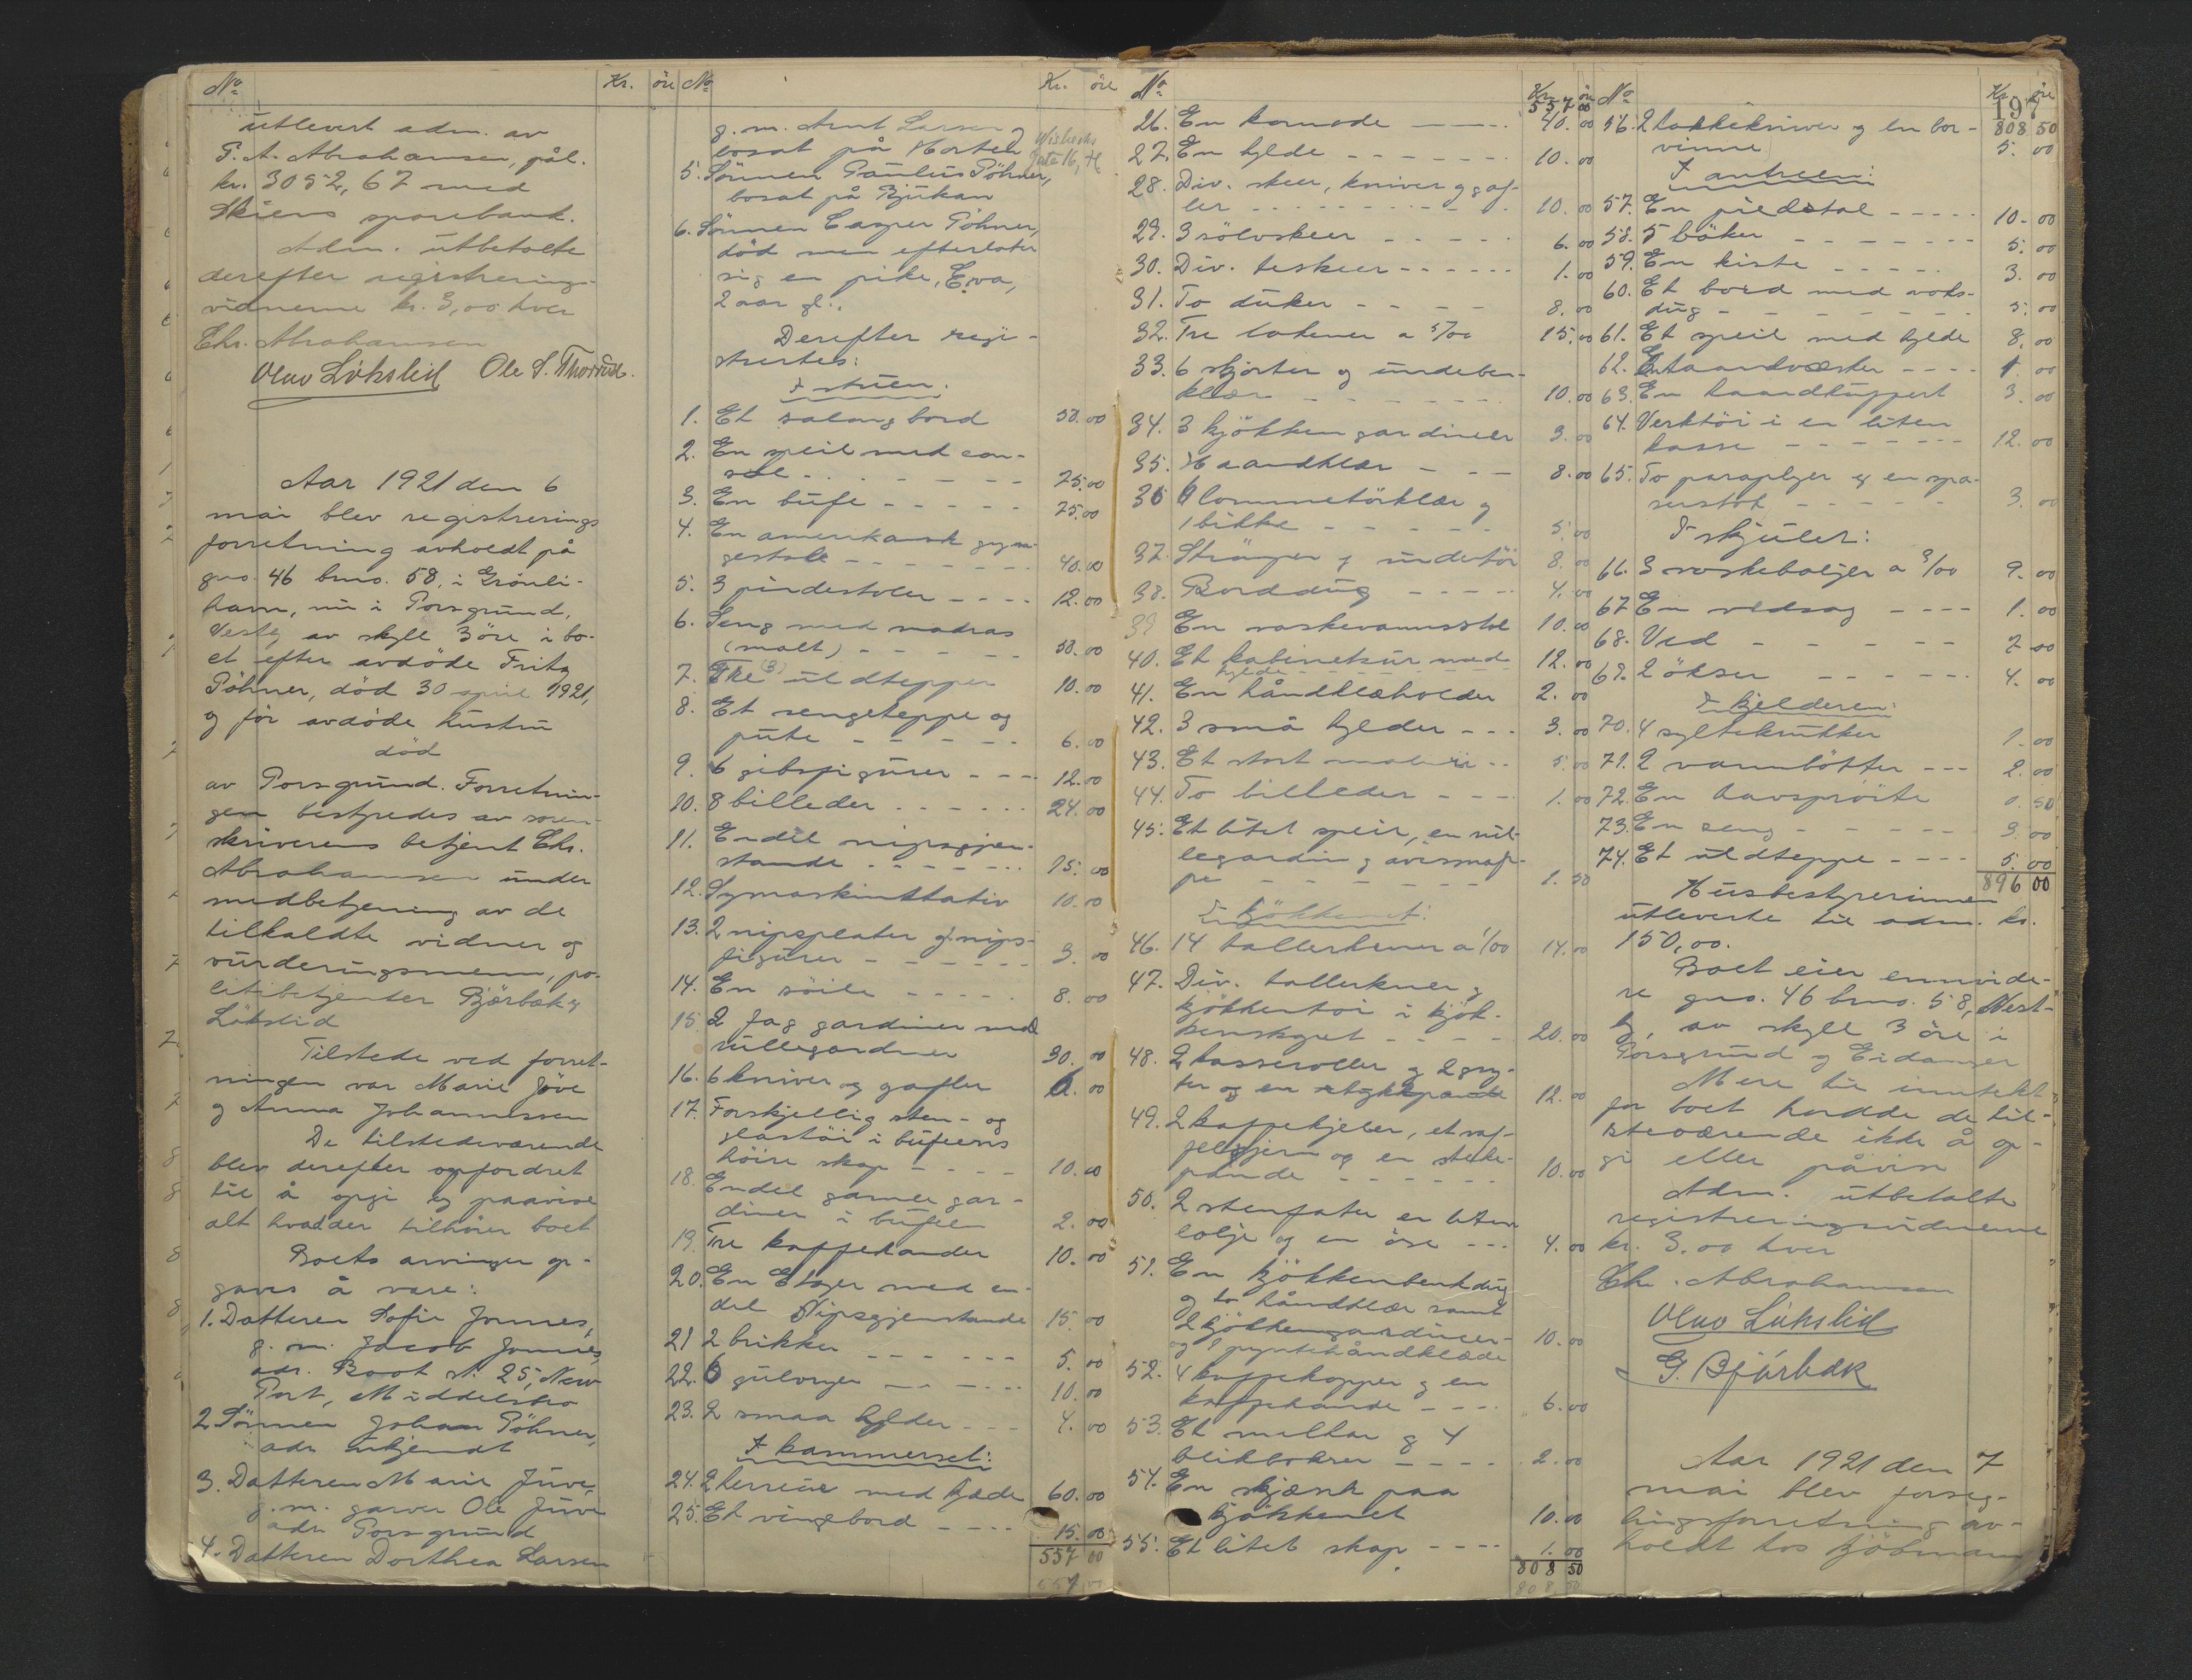 No Kr. öre
utlevert adm. av
P. A. Abrahamsen, pål.
kr. 3052,67 med
Skiens sparebank.
Adm. utbetalte
derefter registrerings-
vidnerne kr. 3,00 hver
Chr. Abrahamsen
Olav Lökslid Ole S. Thorrud.
Aar 1921 den 6
mai blev registrerings
forretning avholdt på
gno. 46 bno. 58, i Grönli-
havn, nu i Porsgrund,
Vestg av skyll 3 öre i bo-
et efter avdöde Fritz
Pöhner, död 30 april 1921,
og för avdöde hustru
död
av Porsgrund. Forretnin-
gen bestyredes av soren-
skriverens betjent Chr.
Abrahamsen under
medbetjening av de
tilkaldte vidner og
vurderingsmenn, po-
litibetjenter Bjørbæk og
Lökslid
Tilstede ved forret-
ningen var Marie Jöve
og Anna Johannessen
De tilstedeværende
blev derefter opfordret
til å opgi og paavise
alt hvad der tilhörer boet
Boets arvinger op-
gaves å være:
1. Datteren Sofie Jonnes,
g. m. Jacob Jonnes,
adr. Boot N. 25, New
Port, Middelsbro
2. Sönnen Johan Pöhner,
adr. ukjendt
3. Datteren Marie Juve,
g. m. garver Ole Juve
adr. Porsgrund
4. Datteren Dorthea Larsen
No Kr. öre
g. m. Arnt Larsen
bosat på Horten
gata 16, H
5. Sönnen Paulus Pöhner,
bosat på Rjukan
6. Sönnen Casper Pöhner,
död men efterlater
sig en pike, Eva,
2 aar gl.
Derefter regi-
strertes:
I stuen:
1. Et salongbord 50.00
2. En speil med con-
sol - - - 25.00
3. En bufe - - - 25.00
4. En amerikansk gyn-
gestole - - - 40.00
5. 3 pindestoler - - - 12.00
6. Seng med madras
(malt) - - - 50.00
7. Tre (3) uldtepper 10.00
8. Et sengeteppe og
pute - - - 6.00
9. 6 gibsfigurer - - - 12.00
10. 8 billeder - - - 24.00
11. Endel nipsgjen-
stande - - - 15.00
12. Symaskinstativ 10.00
13. 2 nipsplater og nips-
figurer - - - 3.00
14. En söile - - - 8.00
15. 2 fag gardiner med
rullegardiner 30.00
16. 6 kniver og gafler 6.00
17. Forskjellig sten- og
glastöi i bufeens
höire skap - - - 10.00
18. Endel gamle gar-
diner i bufeen 2.00
19. Tre kaffekander 10.00
20. En Etager med en-
del Nipsgjenstande 15.00
21 2 brikker - - - 5.00
22. 6 gulvryer - - - 10.00
23. 2 smaa hylder - - - 4.00
I kammerset:
24. 2 herreur med kjæde 60.00
25. Et vingebord - - - 15.00
557 00
557,00
No Kr. öre
557 00
26. En komode - - - 40.00
27. En hylde - - - 10.00
28. Div. skeer, kniver og gaf-
ler - - - 10.00
29. 3 sölvskeer - - - 6.00
30. Div. teskeer - - - 1.00
31. To duker - - - 8.00
32. Tre lakener a 5/00 15.00
33. 6 skjorter og undeben-
klær - - - 10.00
34. 3 kjökkengardiner 3.00
35. Haandklær - - - 8.00
36 6 lommetörklær og
1 bikke - - - 5.00
37. Strömper og undertöi 8.00
38. Borddug - - - 4.00
39 En vaskevannsstol 10.00
40. Et kabinetsur med 12.00
hylde - - -
41. En håndklæholder 2.00
42. 3 små hylder - - - 3.00
43. Et stort maleri - - 5.00
44. To billeder - - - 1.00
45. Et litet speil, en rul-
legardin og avismap-
pe - - - 1.50
I kjökkenet:
46. 14 tallerkener a 1/00 14.00
47. Div. tallerkner og
kjökkentöi i kjök-
kenskapet - - - 20.00
48. 2 kasseroller og 2 gry-
ter og en stykkpande 12.00
49. 2 kaffekjeler, et vaf-
feljern og en steke-
pande - - - 10.00
50. 2 stenfater en liten
bolje og en öse - - - 4.00
51. En kjökkenbenkdug
og to håndklær samt
2 kjökkengardiner 10.00
og 1 pyntehåndklæde
52. 4 kaffekopper og en
kaffekande - - - 6.00
53. Et saltkar og 4
blikbokser - - - 2.00
54. En skjænk paa
kjökkenet 10.00
55. Et litet skap - - - 1.00
808 50
808,50
No Kr. öre
197
808 50
56. 2 hakkekniver og en bor-
vinne 5.00
I antreen:
57. En piedestal - - - 10.00
58. 5 böker - - - 5.00
59. En kiste - - - 3.00
60. Et bord med voks-
dug - - - 5.00
61. Et speil med hylde 8.00
62. En haandvæske - - - 1.00
63. En haandkuffert 3.00
64. Verktöi i en liten
kasse - - - 12.00
65. To paraplyer og en spa-
serstok - - - 3.00
I skjulet:
66. 3 vaskebaljer a 3/00 9.00
67 En vedsag - - - 1.00
68. Ved - - - 7.00
69. 2 ökser - - - 4.00
I kjelderen:
70. 4 syltekrukker 1.00
71. 2 vannbötter - - - 2.00
72. En havsprøite 0.50
73. En seng - - - 3.00
74. Et uldteppe - - - 5.00
896 00
Husbestyrerinnen
utleverte til adm. kr.
150,00.
Boet eier ennvide-
re gno. 46 bno. 58, Vest-
g, av skyll 3 öre i
Porsgrund og Eidanger
Mere til inntekt
for boet hadde de til-
steværende ikke å op-
gi eller påvise
Adm. utbetalte
registreringsvidnerne
kr. 3.00 hver
Chr. Abrahamsen
Olav Lökslid
G. Bjørbæk
Aar 1921 den 7
mai blev forseg-
lingsforretning av-
holdt hos kjöbmann